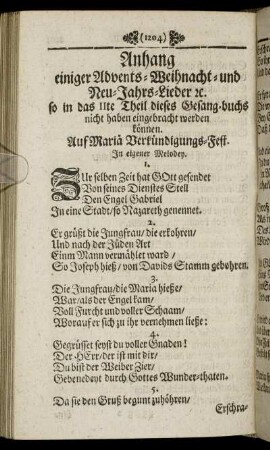 (1204)
Anhang
einiger Advents-Weihnacht-und
Neu-Jahrs-Lieder ꝛc.
so in das IIte Theil dieses Gesang-buchs
nicht haben eingebracht werden
können.
Auf Mariä Verkündigungs-Fest.
In eigener Melodey.
1.
ZUr selben Zeit hat GOtt gesendet
Von seines Dienstes Stell
Den Engel Gabriel
In eine Stadt/ so Nazareth genennet.
2.
Er grüßt die Jungfrau/ die erkohren/
Und nach der Jüden Art
Einm Mann vermählet ward/
So Joseph hieß/ von Davids Stamm gebohren.
3.
Die Jungfrau/ die Maria hieße/
War/ als der Engel kam/
Voll Furcht und voller Schaam/
Worauf er sich zu ihr vernehmen ließe:
4.
Gegrüsset seyst du voller Gnaden!
Der HErr/ der ist mit dir/
Du bist der Weiber Zier/
Gebenedeyt durch Gottes Wunder-thaten.
5.
Da sie den Gruß begunt zuhören/
Erschra-